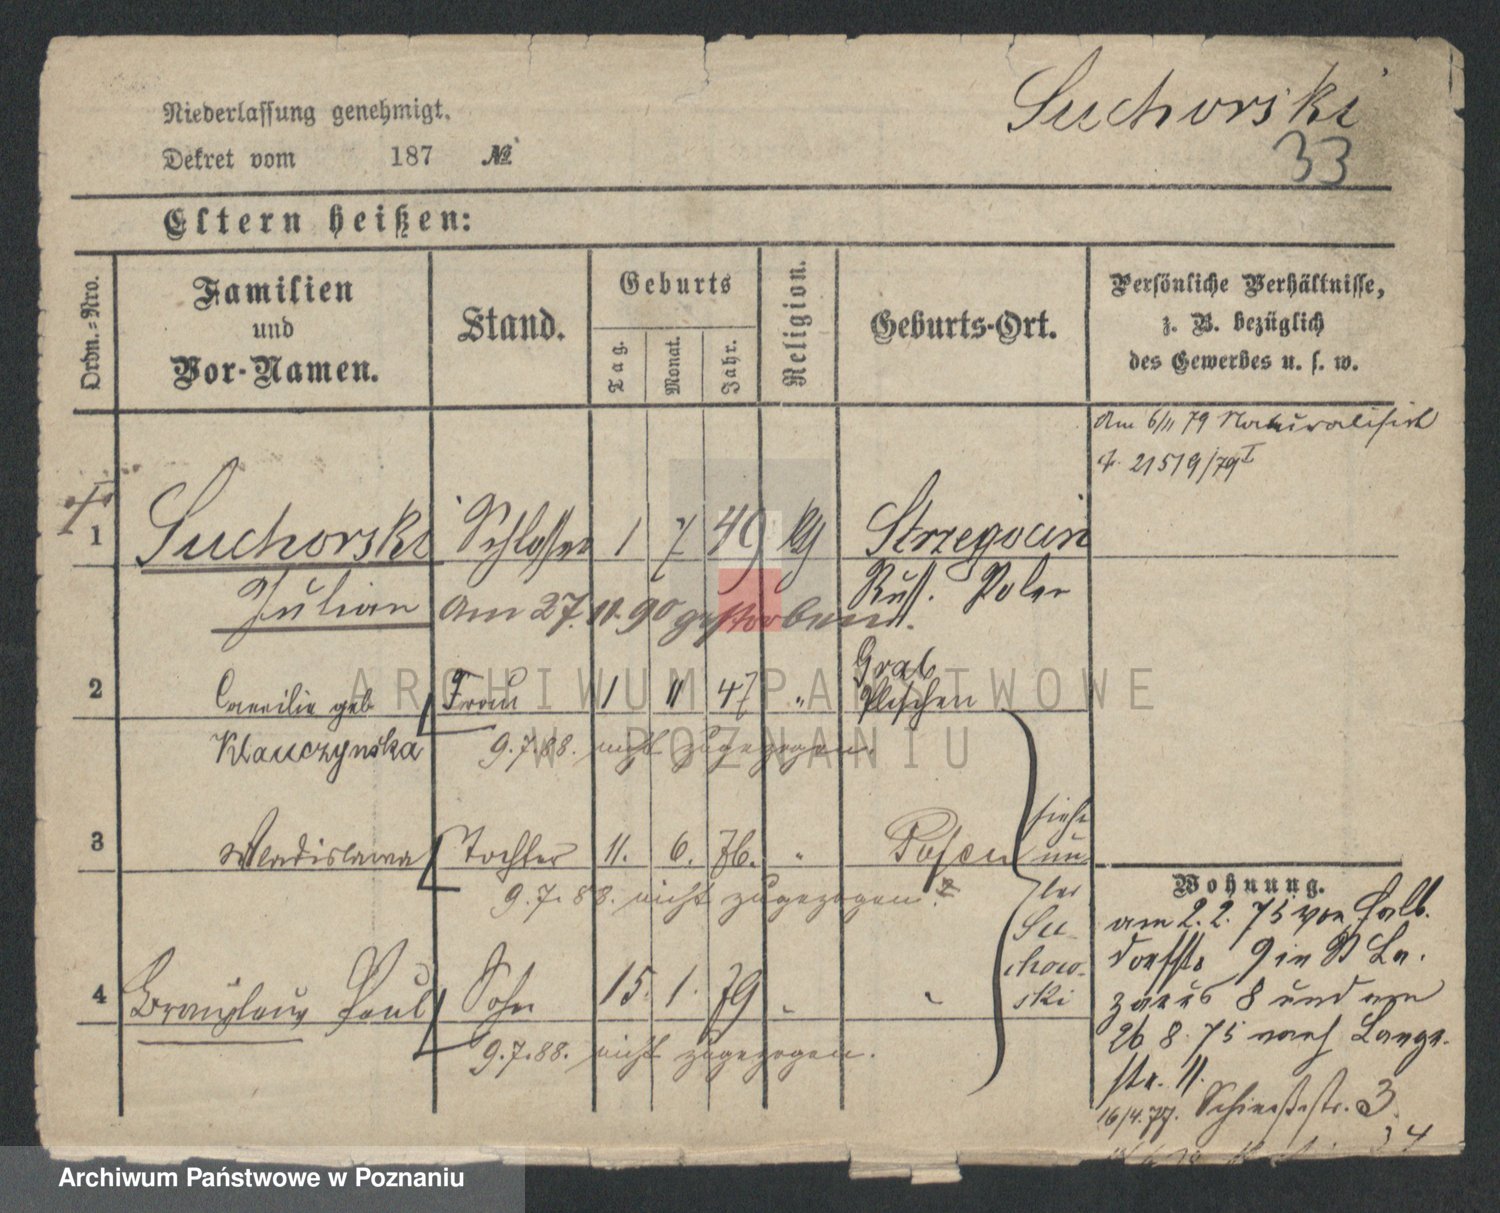 Suchorski
33
Niederlassung genehmigt.
Dekret vom 187 №
Eltern heißen:
Ordn.=Nro.
Familien
und
Vor-Namen.
Stand.
Geburts
Tag.
Monat.
Jahr.
Religion.
Geburts-Ort.
Persönliche Verhältnisse,
z. B. bezüglich
des Gewerbes u. s. w.
Am 6/11 79 Naturalisirt
21519/79 I
1 Suchorski Schlosser 1 7 49 Strzegocin
Julian Am 27.11.90 gestorben. Russ. Polen
2 Caecilie geb Frau 1 11 47 " Grab
Pleschen
Klauczynska 9.7.88. nicht zugezogen.
3 Wladislawa Tochter 11. 6. 76. " Posen
9.7.88. nicht zugezogen.
4 Paul Sohn 15. 1. 79 " "
9.7.88. nicht zugezogen.
siehe
un
ter
Su
chow-
ski
Wohnung.
am 2.2.75 von Halb.
dorfstr 9 in St La.
zarus 8 und am
26 8.75 nach Lange.
str. 11.
16/4.77. 3.
34
ARCHIWUM PAŃSTWOWE
W POZNANIU
Archiwum Państwowe w Poznaniu